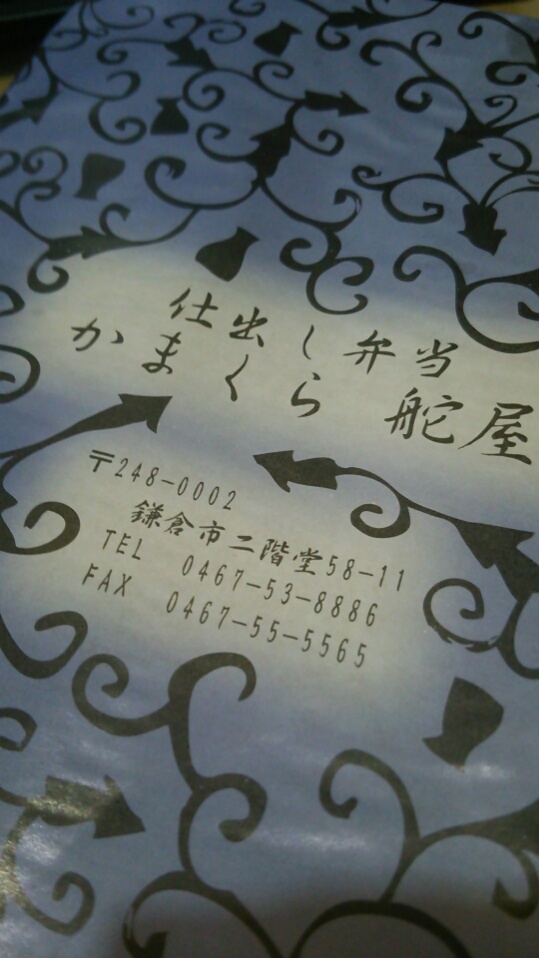 仕出し弁当
かまくら 舵屋
〒248-0002
鎌倉市二階堂58-11
TEL 0467-53-8886
FAX 0467-55-5565